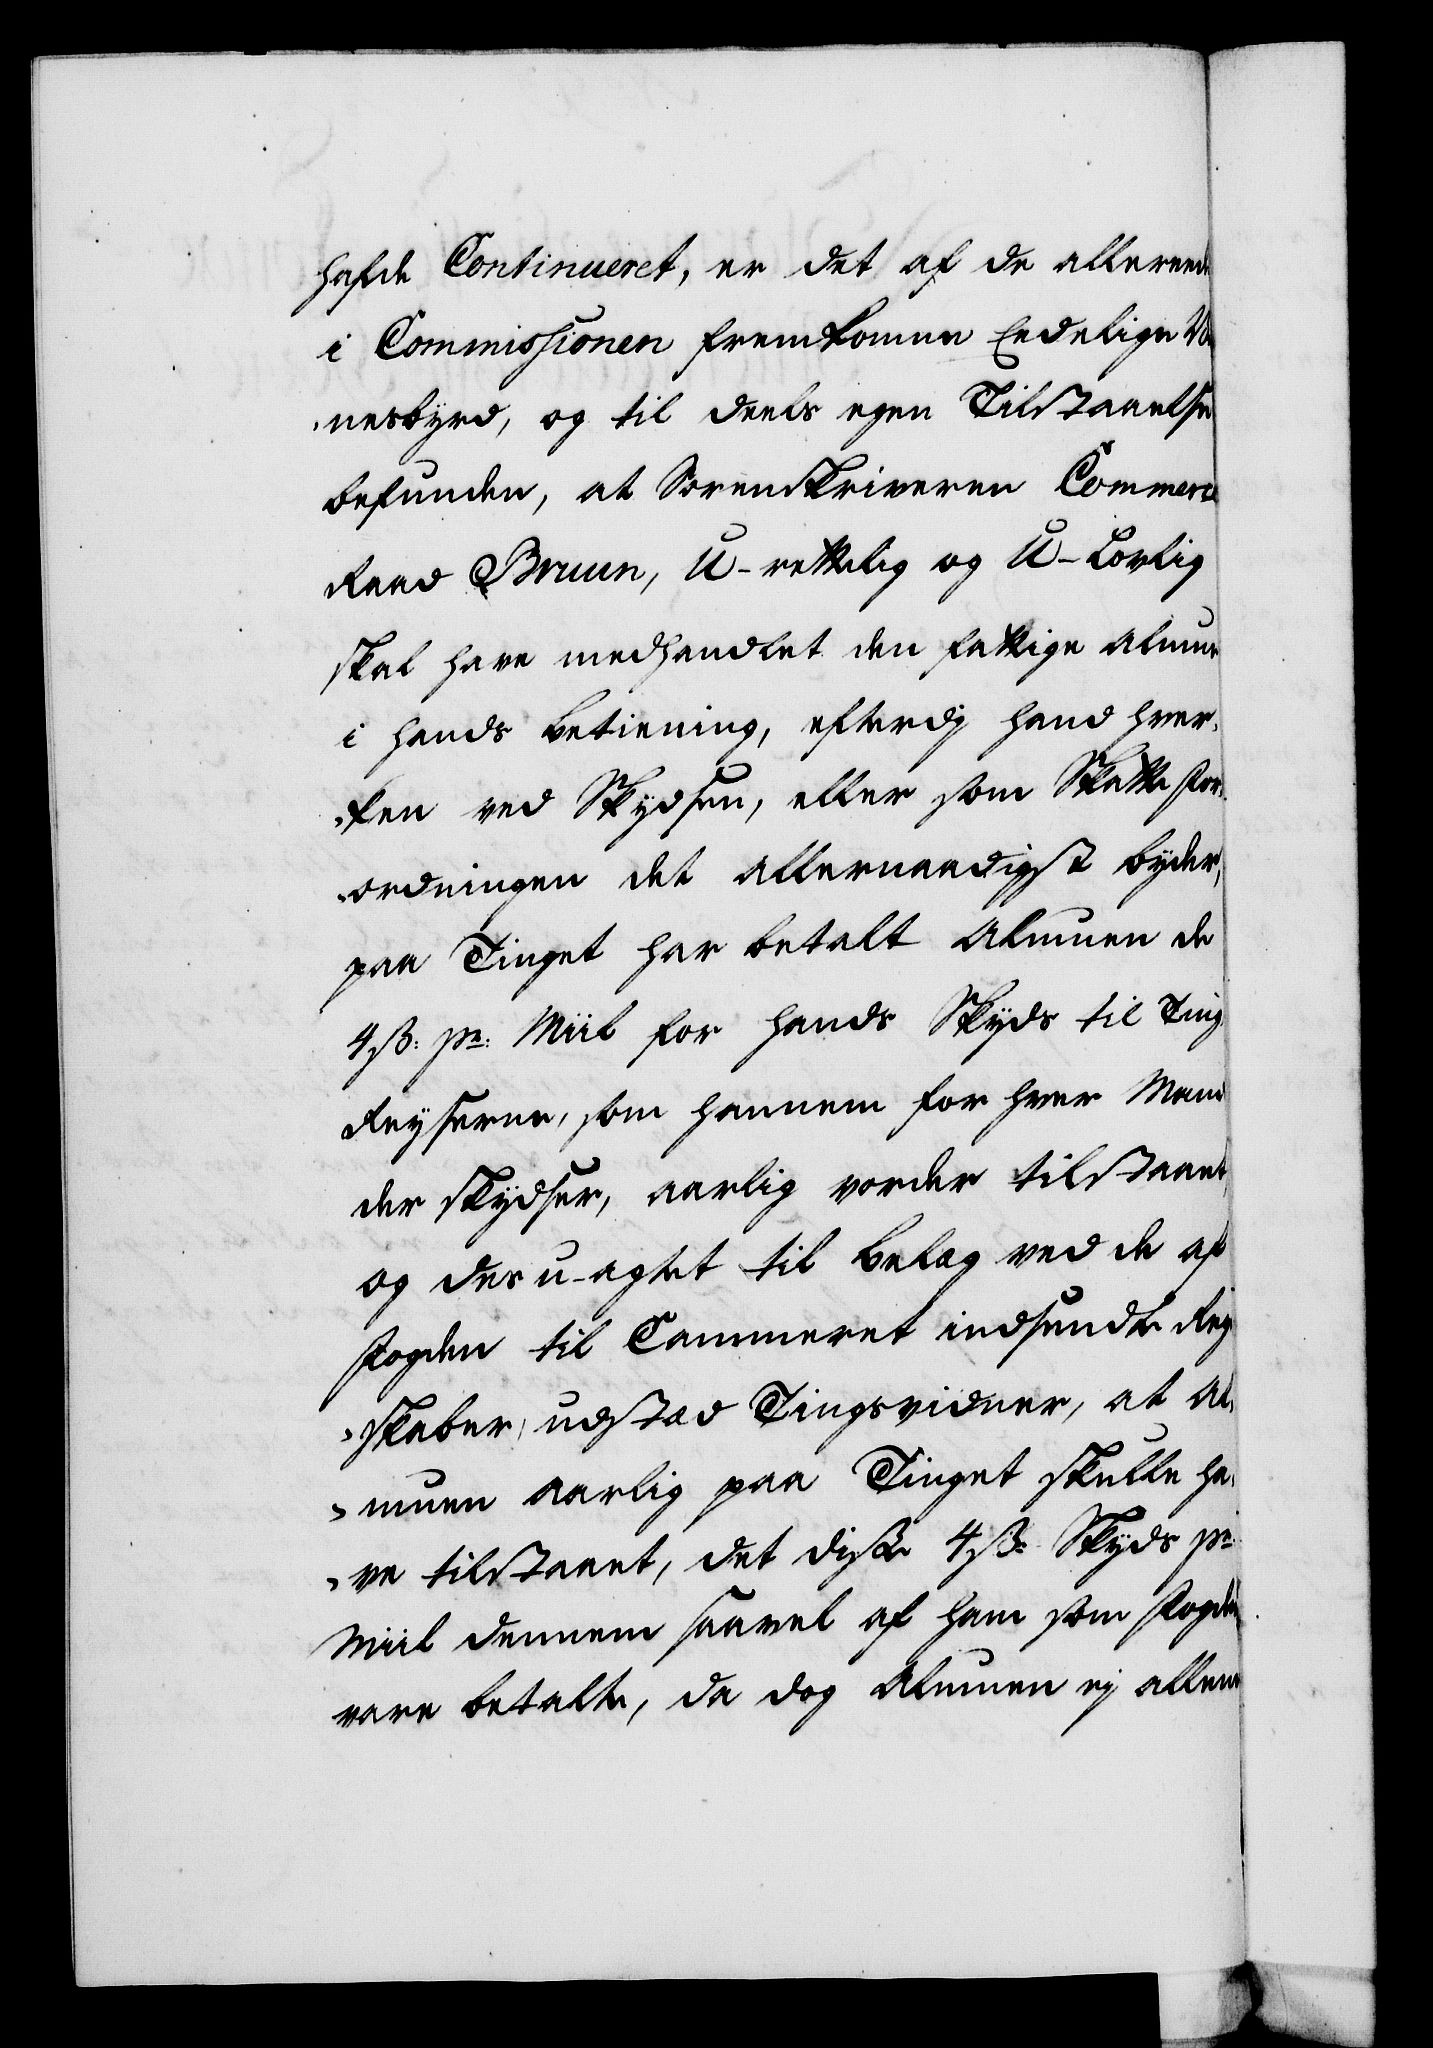 hafde Continueret, er det af de allereede
i Commissionen fremkomne Eedelige Vid
nesbyrd, og til deels egen Tilstaaelse
befunden, at Sorenskriveren Commerce
Raad Bruun, U-rettelig og U-Lovlig
skal have medhandlet den fattige Almue
i hands betiening, efterdj hand hver,
,ken ved Skydsen, eller som Skatte For,
,ordningen det allernaadigst byder,
paa Tinget har betalt Almuen de
4 ß: pr: Miil for hands Skyds til Ting
Reyserne, som hannem for hver Mand
der skydser, aarlig vorder tilstaaet,
og des u-agtet til belæg ved de af
Fogden til Cammeret indsendte Reg
,skaber, udstæd Tingsvidner, at Al,
,muen aarlig paa Tinget skulle ha,
,ve tilstaaet, det disse 4 ß: Skyds pr:
Miil dennem saavel af ham som Fogden
vare betalte, da dog Almuen ej allene